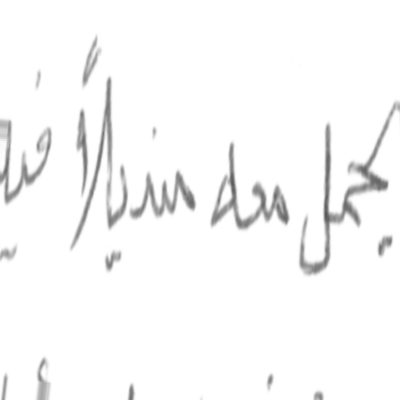 يحمل معه منديلاً فيه